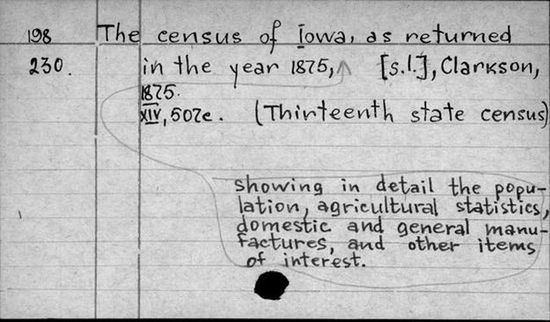 198 The census of Iowa, as returned
230. in the year 1875, [s.l.], Clarkson,
1875.
XIV, 507c. (Thirteenth state census)
showing in detail the popu-
lation, agricultural statistics,
domestic and general manu-
factures, and other items
of interest.